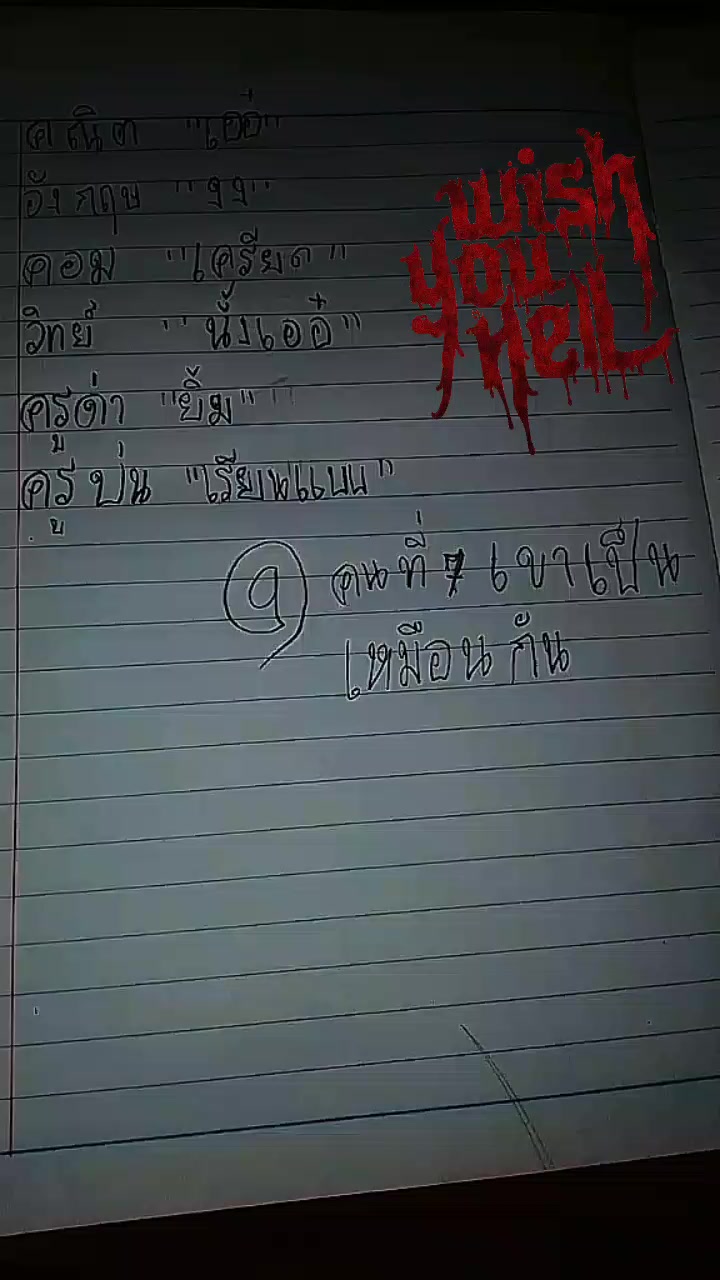 คณิต "เอ๋อ"
อังกฤษ "งง"
คอม "เครียด"
วิทย์ "นั่งเอ๋อ"
ครูด่า "ยิ้ม"
ครูบ่น "เรียบแบน"
wish
you
Hell
คนที่ 7 เขาเป็น
เหมือนกัน